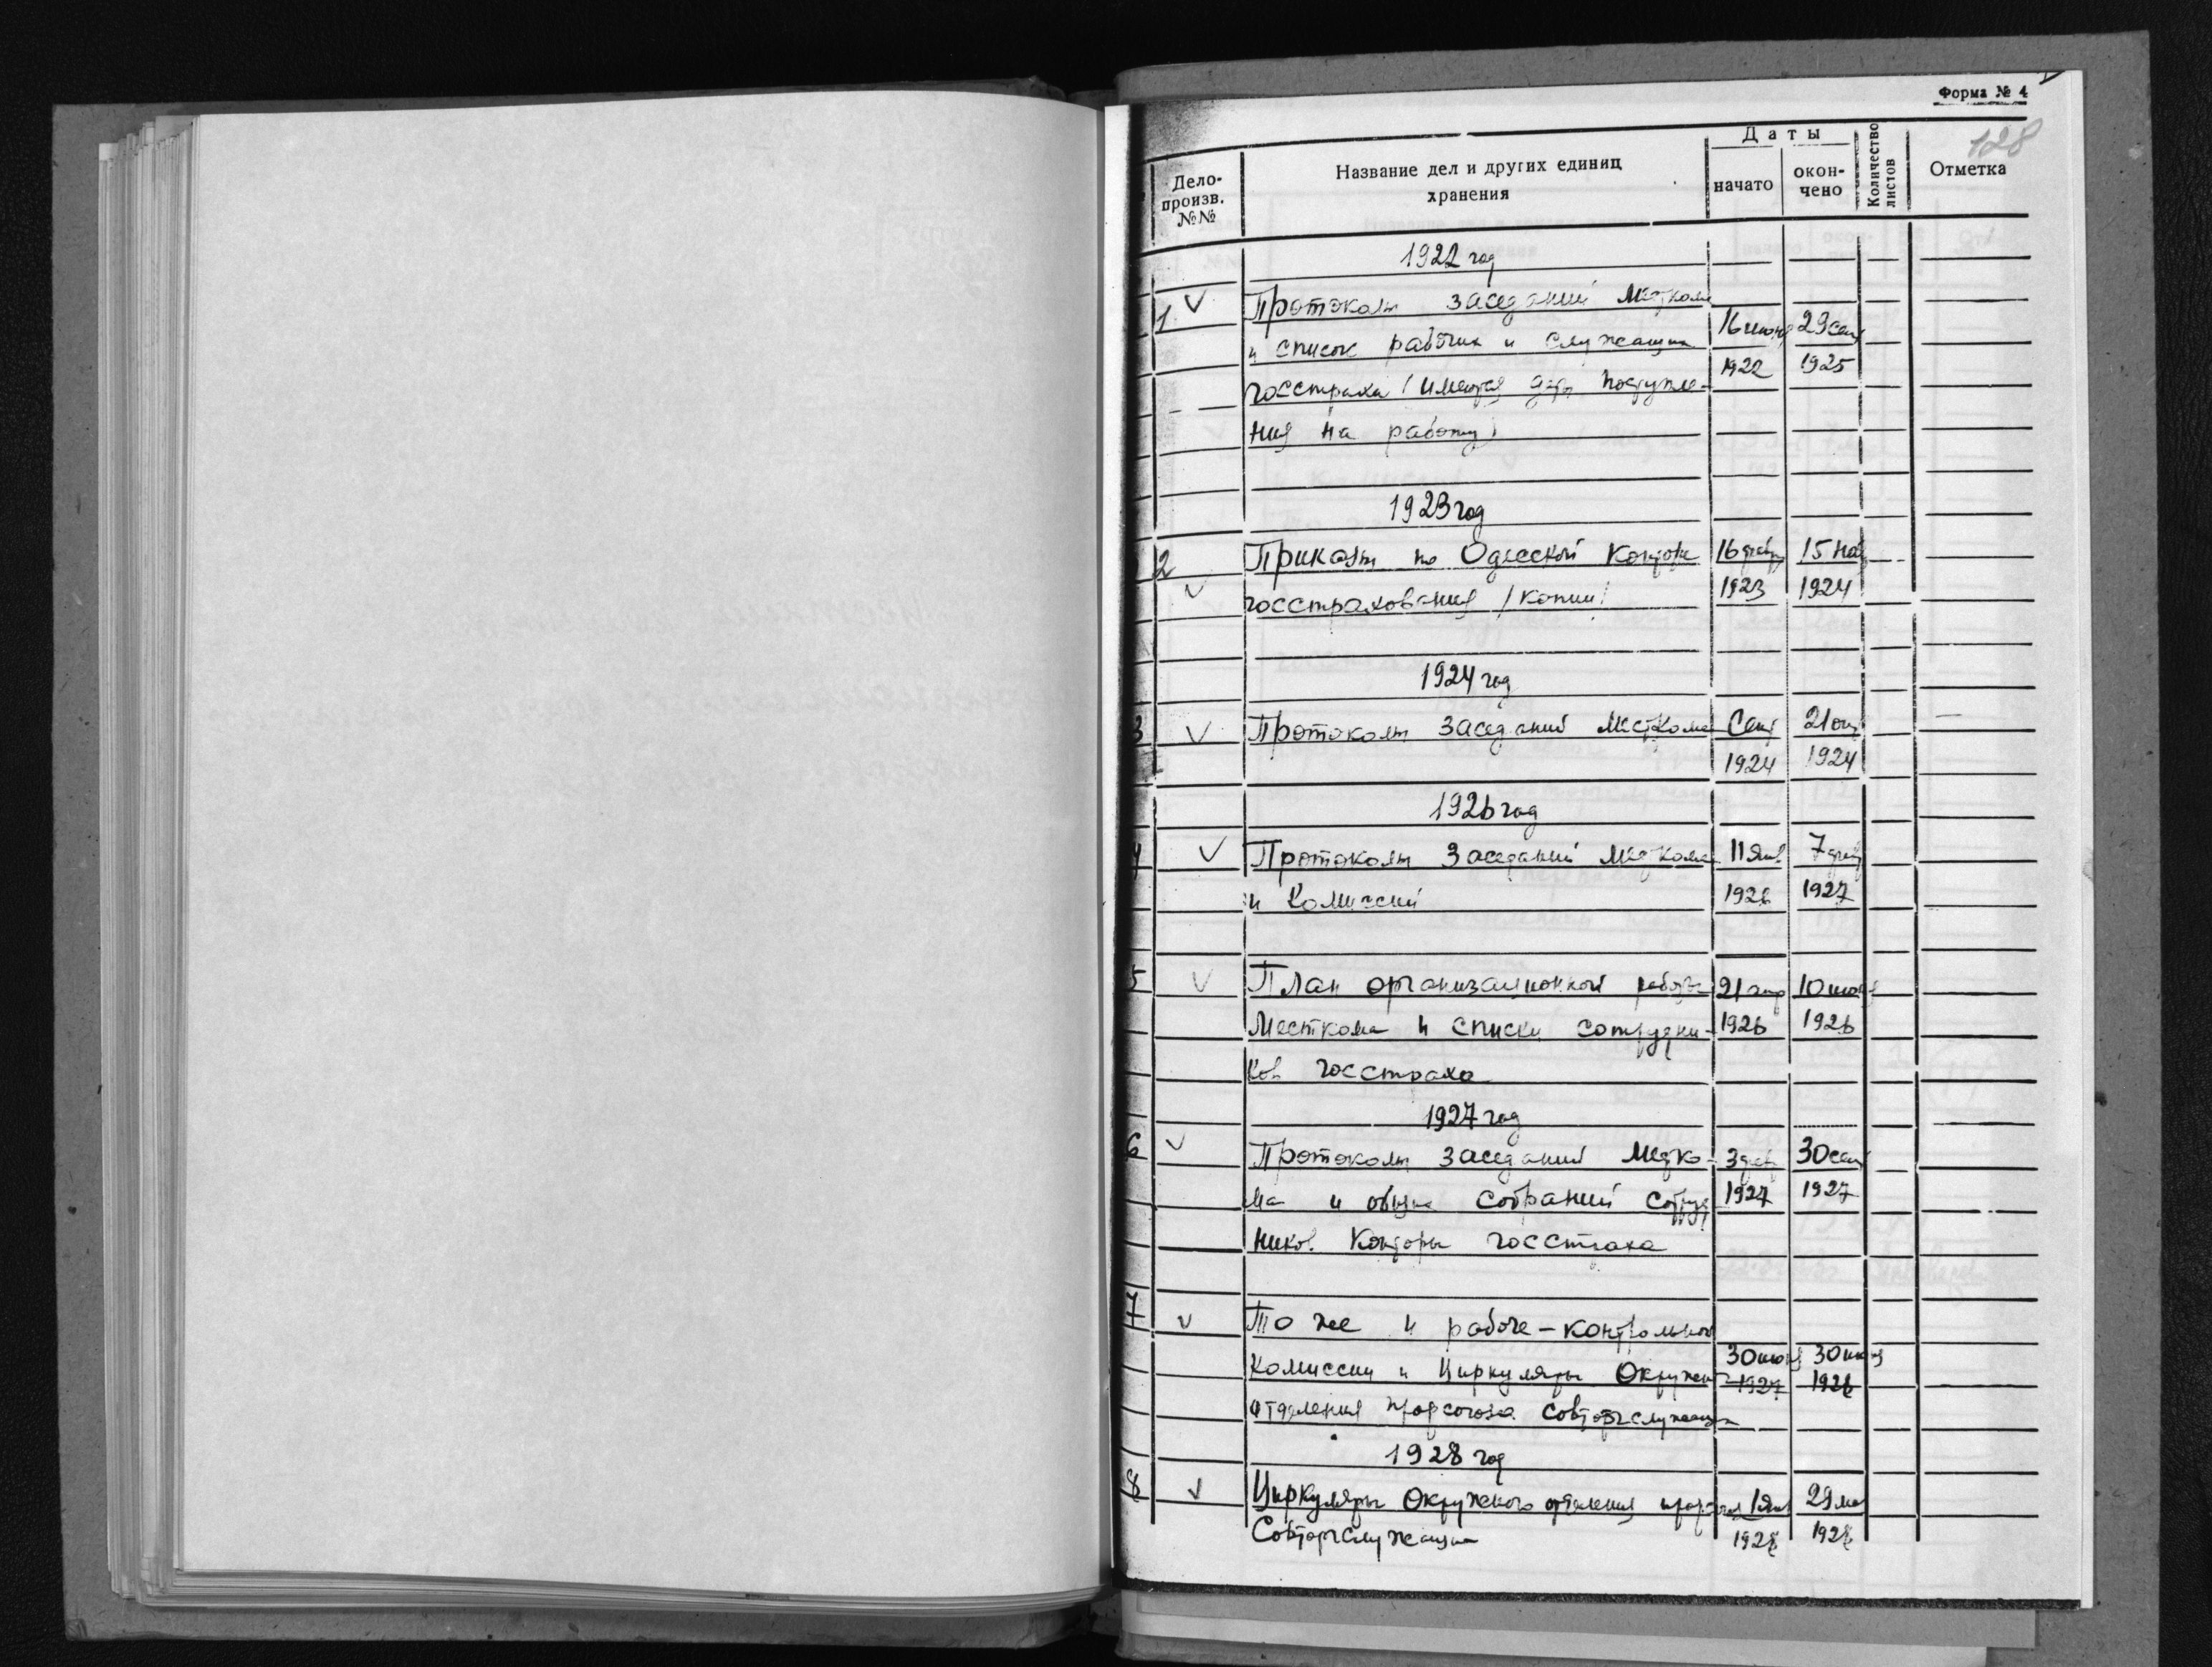 Форма № 4
128
Дело-произв. №№
Название дел и других единиц хранения
Даты
начато
окон-чено
Количество листов
Отметка
1922 год
1 Протоколы заседаний месткома
и список рабочих и служащих 16 июня 29 сент
госстраха (имеются даты поступле- 1922 1925
ния на работу)
1923 год
2 Приказы по Одесской конторе 16 15
госстрахования (копии) 1923 1924
1924 год
3 Протоколы заседаний месткома Сент 21 окт
1924 1924
1926 год
4 Протоколы заседаний месткома 11 янв 7
и комиссий 1926 1927
5 План организационной работы 21 апр 10
Месткома и списки сотрудни- 1926 1926
ков госстраха
1927 год
6 Протоколы заседаний местко- 3 30 сент
ма и общих собраний сотруд 1927 1927
ников конторы госстраха
7 То же и рабоче-контрольной
комиссии и циркуляры Окружн 30 30
отделения профсоюза совторгслужащих 1927 1928
1928 год
8 Циркуляры Окружного отделения 1 янв 29
Совторгслужащих 1928 1928